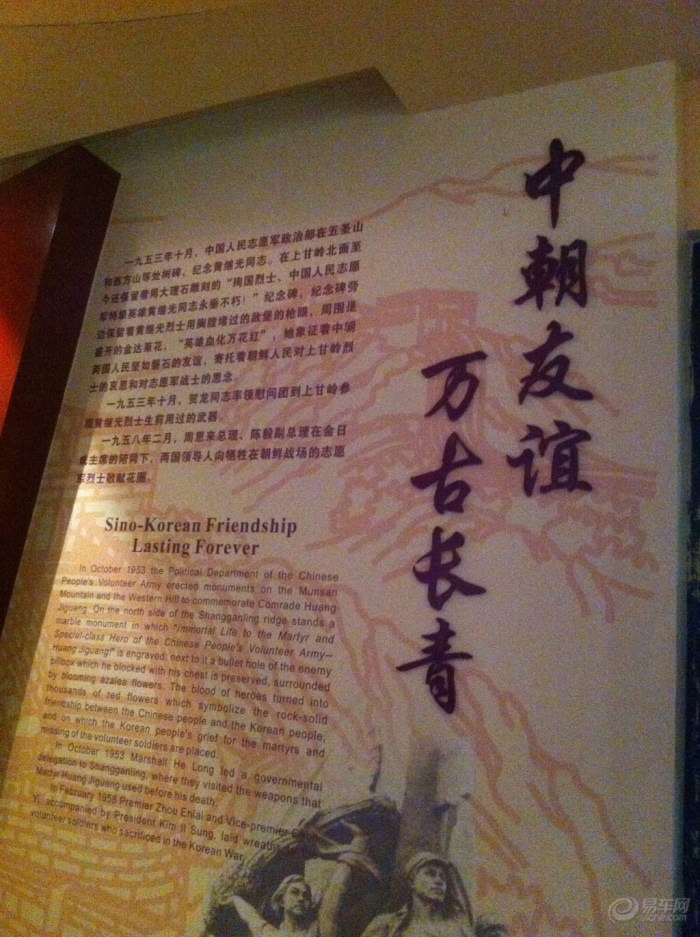 中朝友谊
万古长青
一九五三年十月，中国人民志愿军政治部在五圣山
和西方山等处树碑，纪念黄继光同志。在上甘岭北面至
今还保留着用大理石雕刻的“殉国烈士、中国人民志愿
军特级英雄黄继光同志永垂不朽！”纪念碑，纪念碑旁
边保留着黄继光烈士用胸膛堵过的敌堡的枪眼，周围是
盛开的金达莱花，“英雄血化万花红”，她象征着中朝
两国人民坚如磐石的友谊，寄托着朝鲜人民对上甘岭烈
士的哀思和对志愿军战士的思念。
一九五三年十月，贺龙同志率领慰问团到上甘岭参
观黄继光烈士生前用过的武器。
一九五八年二月，周恩来总理、陈毅副总理在金日
成主席的陪同下，两国领导人向牺牲在朝鲜战场的志愿
军烈士敬献花圈。
Sino-Korean Friendship
Lasting Forever
In October 1953 the Political Department of the Chinese
People's Volunteer Army erected monuments on the Munsan
Mountain and the Western Hill to commemorate Comrade Huang
Jiguang. On the north side of the Shangganling ridge stands a
marble monument in which "Immortal Life to the Martyr and
Special-class Hero of the Chinese People's Volunteer Army—
Huang Jiguang!" is engraved; next to it a bullet hole of the enemy
pillbox which he blocked with his chest is preserved, surrounded
by blooming azalea flowers. The blood of heroes turned into
thousands of red flowers which symbolize the rock-solid
friendship between the Chinese people and the Korean people,
and on which the Korean people's grief for the martyrs and
missing of the volunteer soldiers are placed.
In October 1953 Marshall He Long led a governmental
delegation to Shangganling, where they visited the weapons that
Martyr Huang Jiguang used before his death.
In February 1958 Premier Zhou Enlai and Vice-premier
Yi, accompanied by President Kim Il Sung, laid
volunteer soldiers who sacrificed in the Korean War.
易车网